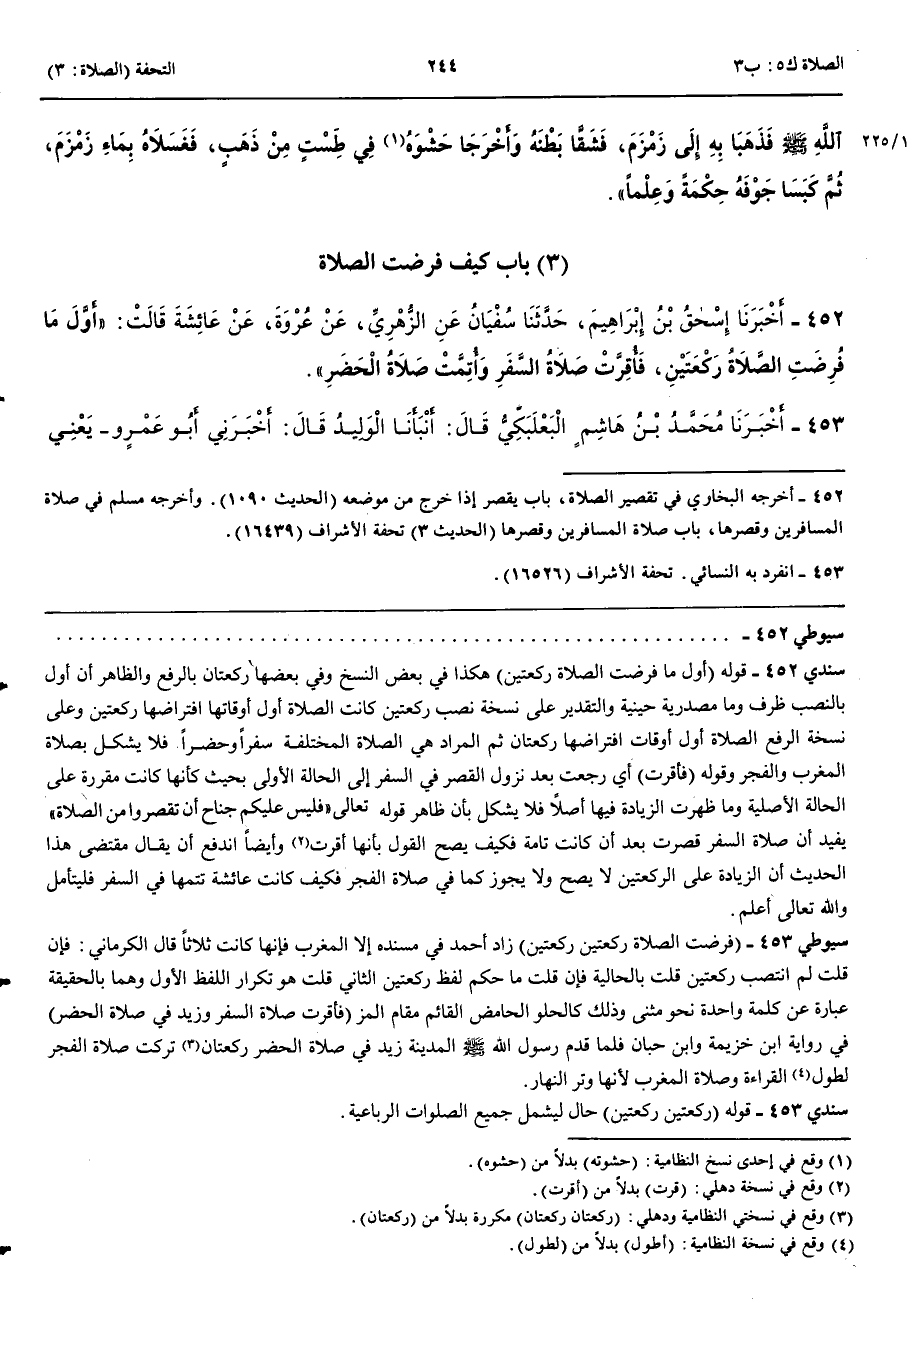 الصلاة ك٥: ب٣ ٢٤٤ التحفة (الصلاة: ٣)
٢٢٥/١ اَللَّهِ ﷺ فَذَهَبَا بِهِ إِلَى زَمْزَمَ، فَشَقَّا بَطْنَهُ وَأَخْرَجَا حَشْوَهُ(١) فِي طَسْتٍ مِنْ ذَهَبٍ، فَغَسَلاَهُ بِمَاءِ زَمْزَمَ،
ثُمَّ كَبَسَا جَوْفَهُ حِكْمَةً وَعِلْماً».
(٣) باب كيف فرضت الصلاة
٤٥٢ ـ أَخْبَرَنَا إِسْحٰقُ بْنُ إِبْرَاهِيمَ، حَدَّثَنَا سُفْيَانُ عَنِ الزُّهْرِيِّ، عَنْ عُرْوَةَ، عَنْ عَائِشَةَ قَالَتْ: «أَوَّلَ مَا
فُرِضَتِ الصَّلاَةُ رَكْعَتَيْنِ، فَأُقِرَّتْ صَلاَةُ السَّفَرِ وَأُتِمَّتْ صَلاَةُ الْحَضَرِ».
٤٥٣ ـ أَخْبَرَنَا مُحَمَّدُ بْنُ هَاشِمٍ الْبَعْلَبَكِّيُّ قَالَ: أَنْبَأَنَا الْوَلِيدُ قَالَ: أَخْبَرَنِي أَبُو عَمْرٍو ـ يَعْنِي
٤٥٢ ـ أخرجه البخاري في تقصير الصلاة، باب يقصر إذا خرج من موضعه (الحديث ١٠٩٠). وأخرجه مسلم في صلاة
المسافرين وقصرها، باب صلاة المسافرين وقصرها (الحديث ٣) تحفة الأشراف (١٦٤٣٩).
٤٥٣ ـ انفرد به النسائي. تحفة الأشراف (١٦٥٢٦).
سيوطي ٤٥٢ ـ . . . . . . . . . . . . . . . . . . . . . . . . . . . . . . . . . . . . . . . . . . . . . . . . . . . . . . . . . . .
سندي ٤٥٢ ـ قوله (أول ما فرضت الصلاة ركعتين) هكذا في بعض النسخ وفي بعضها ركعتان بالرفع والظاهر أن أول
بالنصب ظرف وما مصدرية حينية والتقدير على نسخة نصب ركعتين كانت الصلاة أول أوقاتها افتراضها ركعتين وعلى
نسخة الرفع الصلاة أول أوقات افتراضها ركعتان ثم المراد هي الصلاة المختلفة سفراً وحضراً فلا يشكل بصلاة
المغرب والفجر وقوله (فأقرت) أي رجعت بعد نزول القصر في السفر إلى الحالة الأولى بحيث كأنها كانت مقررة على
الحالة الأصلية وما ظهرت الزيادة فيها أصلاً فلا يشكل بأن ظاهر قوله تعالى «فليس عليكم جناح أن تقصروا من الصلاة»
يفيد أن صلاة السفر قصرت بعد أن كانت تامة فكيف يصح القول بأنها أقرت(٢) وأيضاً اندفع أن يقال مقتضى هذا
الحديث أن الزيادة على الركعتين لا يصح ولا يجوز كما في صلاة الفجر فكيف كانت عائشة تتمها في السفر فليتأمل
والله تعالى أعلم.
سيوطي ٤٥٣ ـ (فرضت الصلاة ركعتين ركعتين) زاد أحمد في مسنده إلا المغرب فإنها كانت ثلاثاً قال الكرماني: فإن
قلت لم انتصب ركعتين قلت بالحالية فإن قلت ما حكم لفظ ركعتين الثاني قلت هو تكرار اللفظ الأول وهما بالحقيقة
عبارة عن كلمة واحدة نحو مثنى وذلك كالحلو الحامض القائم مقام المز (فأقرت صلاة السفر وزيد في صلاة الحضر)
في رواية ابن خزيمة وابن حبان فلما قدم رسول الله ﷺ المدينة زيد في صلاة الحضر ركعتان(٣) تركت صلاة الفجر
لطول(٤) القراءة وصلاة المغرب لأنها وتر النهار.
سندي ٤٥٣ ـ قوله (ركعتين ركعتين) حال ليشمل جميع الصلوات الرباعية.
(١) وقع في إحدى نسخ النظامية: (حشوته) بدلاً من (حشوه).
(٢) وقع في نسخة دهلي: (قرت) بدلاً من (أقرت).
(٣) وقع في نسختي النظامية ودهلي: (ركعتان ركعتان) مكررة بدلاً من (ركعتان).
(٤) وقع في نسخة النظامية: (أطول) بدلاً من (لطول).